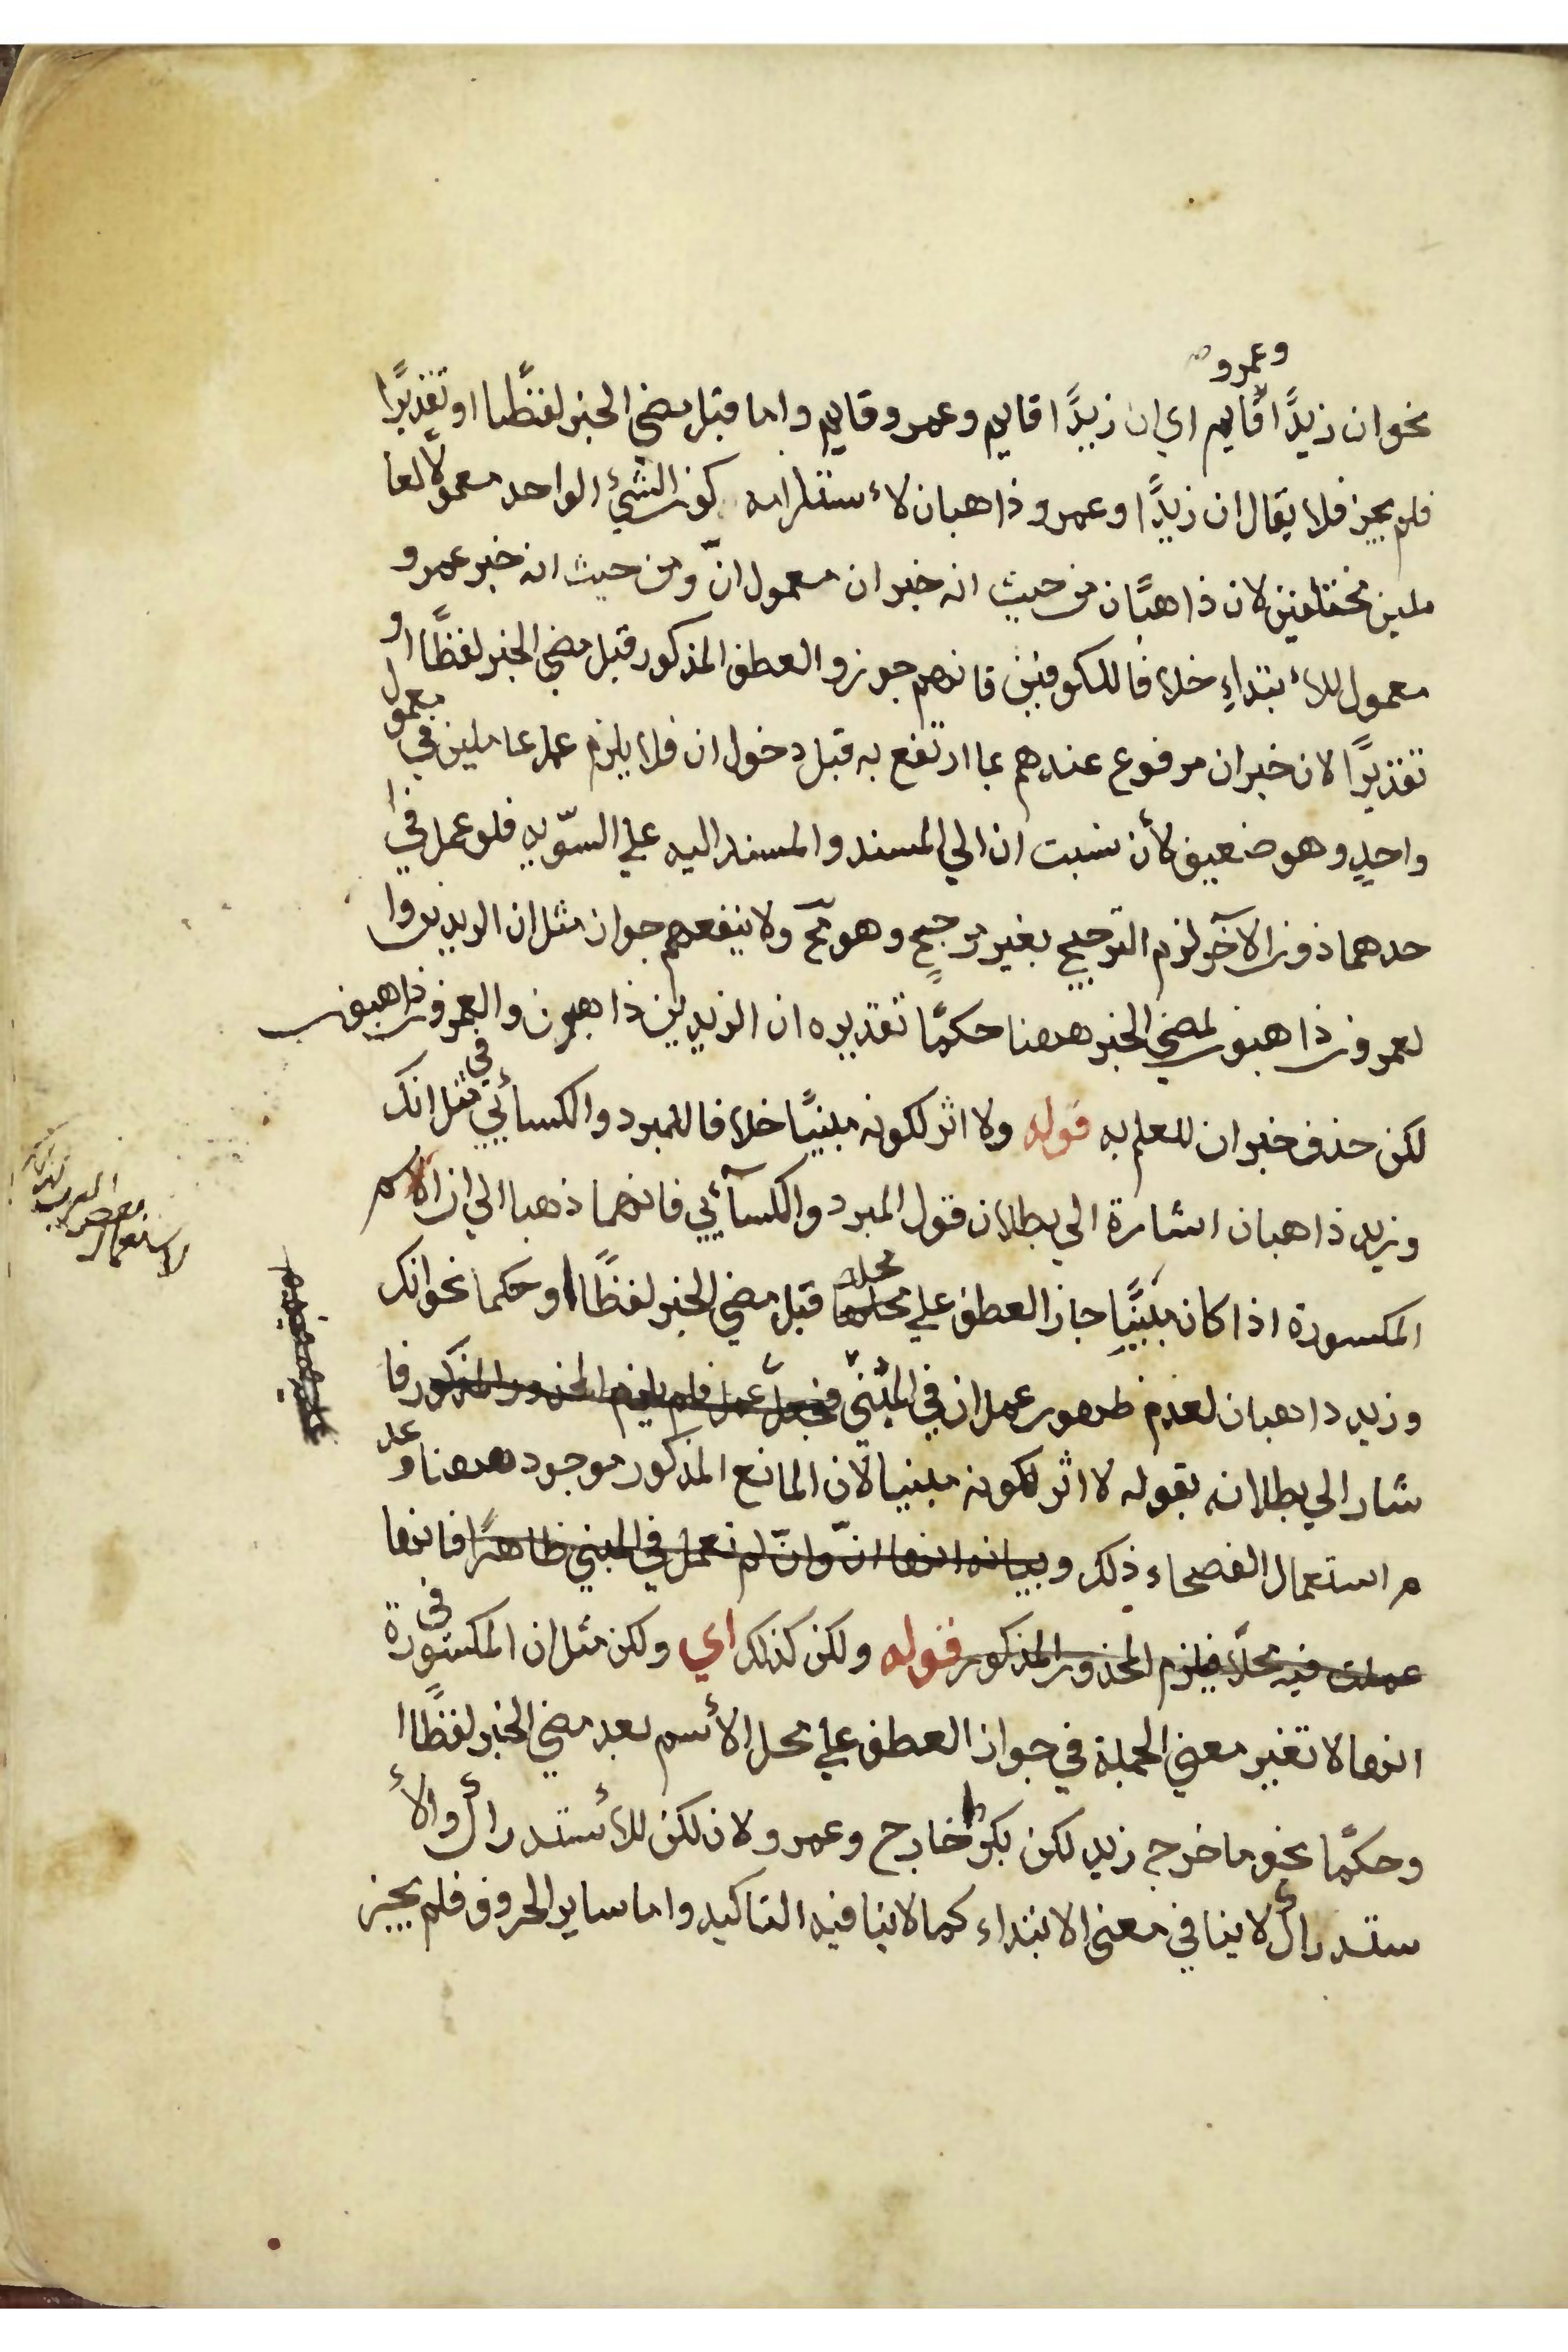 وعمرو
نحو ان زيدًا قايم اي ان زيدًا قايم وعمرو قايم واما قبل مضي الخبر لفظًا او تقديرًا
فلم يجز فلا يقال ان زيدًا وعمرو ذاهبان لاٴستلزامه كون الشيئ الواحد معمولًا لعا
ملين مختلفين لان ذاهبان من حيث انه خبر ان معمول انّ ومن حيث انه خبر عمرو
معمول للاٴبتداءِ خلافا للكوفيين فانهم جوزوا العطف المذكور قبل مضي الخبر لفظًا او
تقديرًا لان خبر ان مرفوع عندهم بما ارتفع به قبل دخول ان فلا يلزم عمل عاملين في معمول
واحدٍ وهو ضعيف لأن نسبت ان الي المسند والمسند اليه علي السّويه فلو عمل في ا
حدهما دون الآخر لزم الترجيح بغير مرجح وهو مح ولا ينفعهم جواز مثل ان الزيدين وا
لعمرون ذاهبون لمضي الخبر ههنا حكمًا تقديره ان الزيدين ذاهبون والعمرون ذاهبون
لكن حذف خبر ان للعلم به قوله ولا اثر لكونه مبنيًا خلافا للمبرد والكسائي في مثل انك
وزيد ذاهبان اشارة الي بطلان قول المبرد والكسآئي فانهما ذهبا الي ان الاسم
المكسورة اذا كان مبنيًا جاز العطف علي محله قبل مضي الخبر لفظًا او حكما نحو انك
وزيد ذاهبان لعدم ظهور عمل ان في المبنيّ فجعل عمل فلم يلزم المحذور المذكور فا
شار الي بطلانه بقوله لا اثر لكونه مبنيا لان المانع المذكور موجود ههنا وعد
م استعمال الفصحاء ذلك وبيانه انها انّ وانّ لم تعمل في المبني ظاهرًا فانها
عملت فيه محلًا فيلزم المحذور المذكور قوله ولكن كذلك اي ولكن مثل ان المكسورة في
انها لا تغير معني الجملة في جواز العطف علي محل الاٴسم بعد مضي الخبر لفظًا ا
وحكمًا نحو ما خرج زيد لكن بكرًا خارج وعمرو لان لكن للاٴستدراك والاٴ
ستدراك لا ينافي معنى الابتداء كما لا ينافيه التاكيد واما ساير الحروف فلم يجز